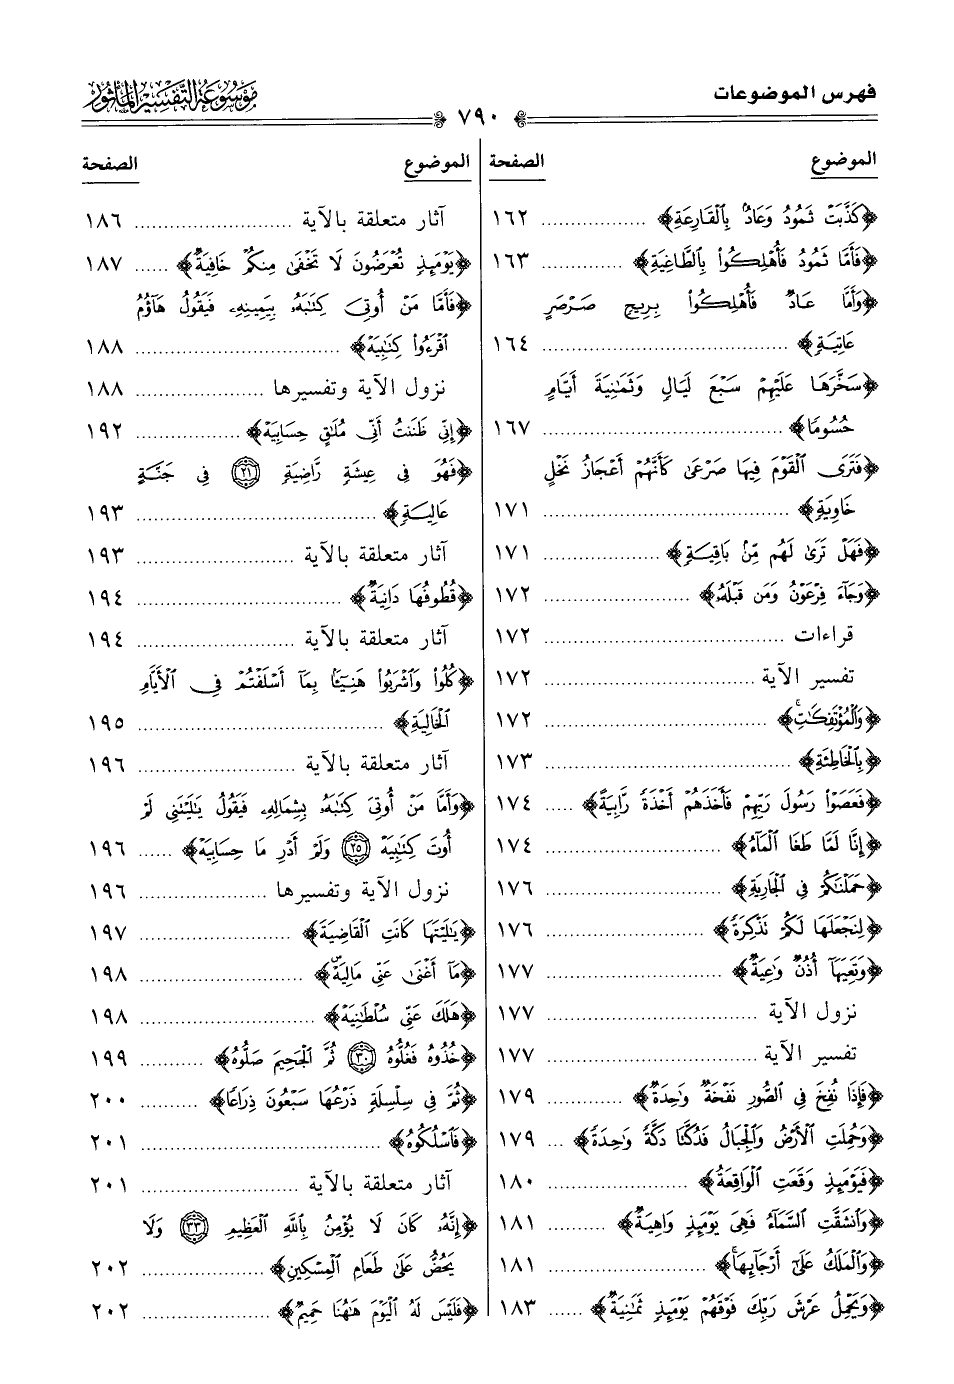 فهرس الموضوعات
٧٩٠
موسوعة التفسير المأثور
الموضوع الصفحة
﴿كَذَّبَتْ ثَمُودُ وَعَادٌ بِالْقَارِعَةِ﴾ ١٦٢
﴿فَأَمَّا ثَمُودُ فَأُهْلِكُوا بِالطَّاغِيَةِ﴾ ١٦٣
﴿وَأَمَّا عَادٌ فَأُهْلِكُوا بِرِيحٍ صَرْصَرٍ
عَاتِيَةٍ﴾ ١٦٤
﴿سَخَّرَهَا عَلَيْهِمْ سَبْعَ لَيَالٍ وَثَمَانِيَةَ أَيَّامٍ
حُسُومًا﴾ ١٦٧
﴿فَتَرَى الْقَوْمَ فِيهَا صَرْعَى كَأَنَّهُمْ أَعْجَازُ نَخْلٍ
خَاوِيَةٍ﴾ ١٧١
﴿فَهَلْ تَرَى لَهُم مِّنْ بَاقِيَةٍ﴾ ١٧١
﴿وَجَاءَ فِرْعَوْنُ وَمَن قَبْلَهُ﴾ ١٧٢
قراءات ١٧٢
تفسير الآية ١٧٢
﴿وَالْمُؤْتَفِكَاتُ﴾ ١٧٢
﴿بِالْخَاطِئَةِ﴾ ١٧٣
﴿فَعَصَوْا رَسُولَ رَبِّهِمْ فَأَخَذَهُمْ أَخْذَةً رَّابِيَةً﴾ ١٧٤
﴿إِنَّا لَمَّا طَغَا الْمَاءُ﴾ ١٧٤
﴿حَمَلْنَاكُمْ فِي الْجَارِيَةِ﴾ ١٧٦
﴿لِنَجْعَلَهَا لَكُمْ تَذْكِرَةً﴾ ١٧٦
﴿وَتَعِيَهَا أُذُنٌ وَاعِيَةٌ﴾ ١٧٧
نزول الآية ١٧٧
تفسير الآية ١٧٧
﴿فَإِذَا نُفِخَ فِي الصُّورِ نَفْخَةٌ وَاحِدَةٌ﴾ ١٧٩
﴿وَحُمِلَتِ الْأَرْضُ وَالْجِبَالُ فَدُكَّتَا دَكَّةً وَاحِدَةً﴾ ١٧٩
﴿فَيَوْمَئِذٍ وَقَعَتِ الْوَاقِعَةُ﴾ ١٨٠
﴿وَانشَقَّتِ السَّمَاءُ فَهِيَ يَوْمَئِذٍ وَاهِيَةٌ﴾ ١٨١
﴿وَالْمَلَكُ عَلَى أَرْجَائِهَا﴾ ١٨١
﴿وَيَحْمِلُ عَرْشَ رَبِّكَ فَوْقَهُمْ يَوْمَئِذٍ ثَمَانِيَةٌ﴾ ١٨٣
الموضوع الصفحة
آثار متعلقة بالآية ١٨٦
﴿يَوْمَئِذٍ تُعْرَضُونَ لَا تَخْفَى مِنكُمْ خَافِيَةٌ﴾ ١٨٧
﴿فَأَمَّا مَنْ أُوتِيَ كِتَابَهُ بِيَمِينِهِ فَيَقُولُ هَاؤُمُ
اقْرَءُوا كِتَابِيَهْ﴾ ١٨٨
نزول الآية وتفسيرها ١٨٨
﴿إِنِّي ظَنَنتُ أَنِّي مُلَاقٍ حِسَابِيَهْ﴾ ١٩٢
﴿فَهُوَ فِي عِيشَةٍ رَّاضِيَةٍ ٢١ فِي جَنَّةٍ
عَالِيَةٍ﴾ ١٩٣
آثار متعلقة بالآية ١٩٣
﴿قُطُوفُهَا دَانِيَةٌ﴾ ١٩٤
آثار متعلقة بالآية ١٩٤
﴿كُلُوا وَاشْرَبُوا هَنِيئًا بِمَا أَسْلَفْتُمْ فِي الْأَيَّامِ
الْخَالِيَةِ﴾ ١٩٥
آثار متعلقة بالآية ١٩٦
﴿وَأَمَّا مَنْ أُوتِيَ كِتَابَهُ بِشِمَالِهِ فَيَقُولُ يَالَيْتَنِي لَمْ
أُوتَ كِتَابِيَهْ ٢٥ وَلَمْ أَدْرِ مَا حِسَابِيَهْ﴾ ١٩٦
نزول الآية وتفسيرها ١٩٦
﴿يَالَيْتَهَا كَانَتِ الْقَاضِيَةَ﴾ ١٩٧
﴿مَا أَغْنَى عَنِّي مَالِيَهْ﴾ ١٩٨
﴿هَلَكَ عَنِّي سُلْطَانِيَهْ﴾ ١٩٨
﴿خُذُوهُ فَغُلُّوهُ ٣٠ ثُمَّ الْجَحِيمَ صَلُّوهُ﴾ ١٩٩
﴿ثُمَّ فِي سِلْسِلَةٍ ذَرْعُهَا سَبْعُونَ ذِرَاعًا﴾ ٢٠٠
﴿فَاسْلُكُوهُ﴾ ٢٠١
آثار متعلقة بالآية ٢٠١
﴿إِنَّهُ كَانَ لَا يُؤْمِنُ بِاللَّهِ الْعَظِيمِ ٣٣ وَلَا
يَحُضُّ عَلَى طَعَامِ الْمِسْكِينِ﴾ ٢٠٢
﴿فَلَيْسَ لَهُ الْيَوْمَ هَاهُنَا حَمِيمٌ﴾ ٢٠٢